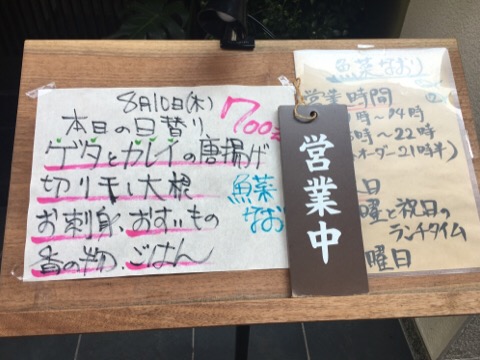 8月10日(木)
本日の日替り、700円
ゲタとカレイの唐揚げ
切り干し大根
お刺身、おすいもの
香の物、ごはん
魚菜
なおり
営業中
魚菜 なおり
営業時間
時〜14時
時〜22時
オーダー21時半)
日
曜と祝日の
ランチタイム
曜日